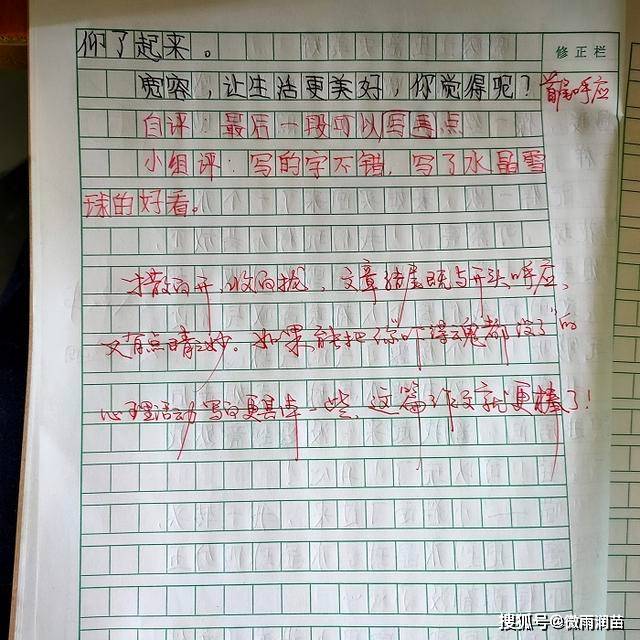 仰了起来。
修正栏
宽容，让生活更美好，你觉得呢？
首尾呼应
自评：最后一段可以写再点
小组评：写的字不错，写了水晶雪
球的好看。
撒的开，收的拢，文章结尾既与开头呼应，
又有点睛之妙。如果能把你“吓得魂都没了”的
心理活动写的更具体一些，这篇作文就更棒了！
搜狐号@微雨润苗